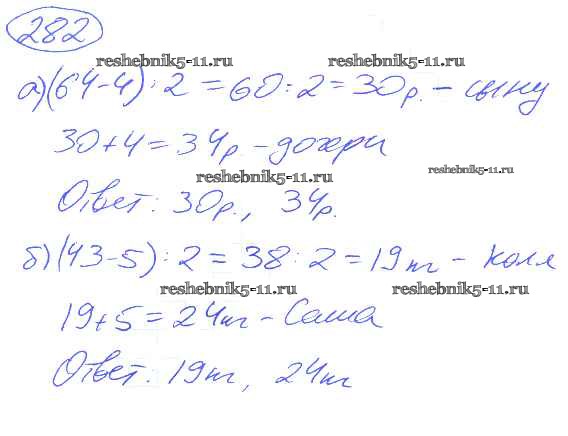 282
reshebnik5-11.ru reshebnik5-11.ru
а) (64-4) : 2 = 60 : 2 = 30р. - сыну
30 + 4 = 34р - дочери
reshebnik5-11.ru reshebnik5-11.ru
Ответ: 30р., 34р.
б) (43-5) : 2 = 38 : 2 = 19м - Коля
reshebnik5-11.ru reshebnik5-11.ru
19 + 5 = 24м - Саша
Ответ: 19м, 24м